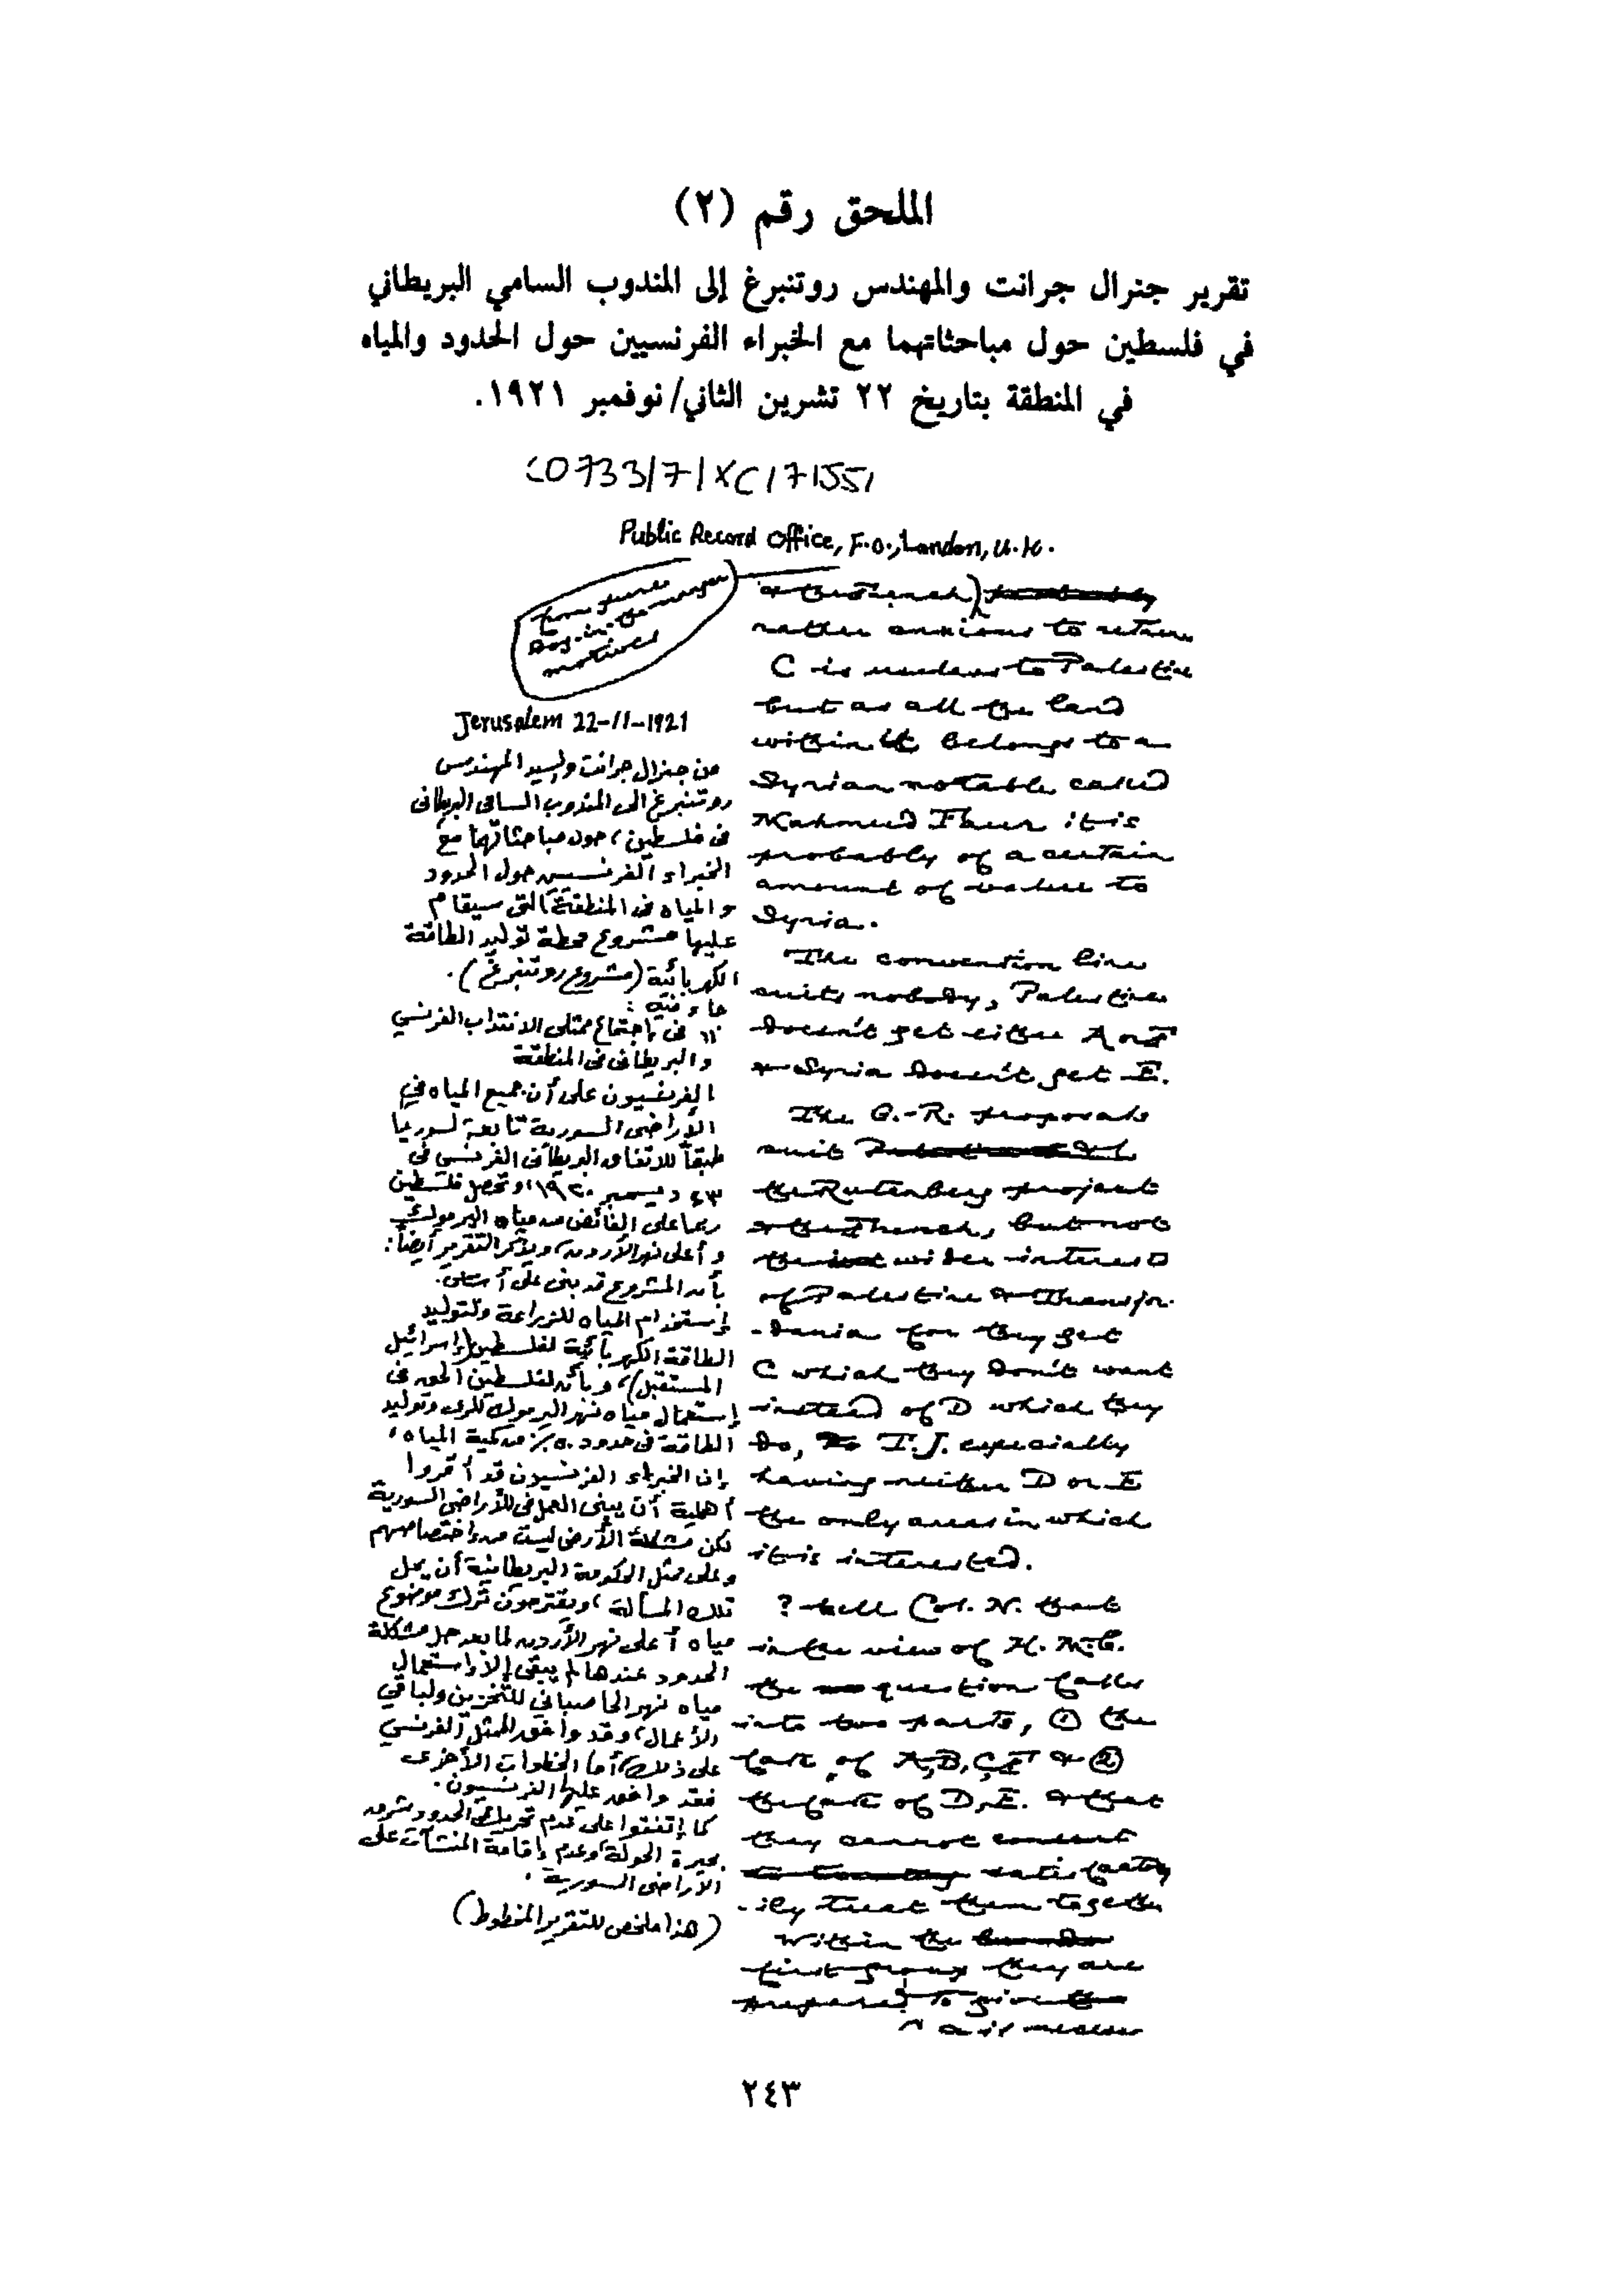 الملحق رقم (٢)
تقرير جنرال جرانت والمهندس روتنبرغ إلى المندوب السامي البريطاني
في فلسطين حول مباحثاتهما مع الخبراء الفرنسيين حول الحدود والمياه
في المنطقة بتاريخ ٢٢ تشرين الثاني/نوفمبر ١٩٢١.
CO733/7/XC/71551
Public Record Office, F.O., London, U.K.
from pure
dog-in-the-manger
motives
Jerusalem 22-11-1921
من جنرال جرانت والسيد المهندس
روتنبرغ الى المندوب السامى البريطانى
فى فلسطين، حول مباحثاتهما مع
الخبراء الفرنسيين حول الحدود
والمياه فى المنطقة التى سيقام
عليها مشروع محطة توليد الطاقة
الكهربائية (مشروع روتنبرغ).
جاء فيه:
فى إجتماع ممثلى الانتداب الفرنسي
والبريطانى فى المنطقة
الفرنسيون على أن جميع المياه في
الأراضى السورية تابعة لسوريا
طبقاً للاتفاق البريطانى الفرنسي فى
٢٣ ديسمبر ١٩٢٠، وتحصل فلسطين
ربما على الفائض من مياه اليرموك
وأعلى نهر الأردن، ويذكر التقرير أيضاً:
بأن المشروع قد بنى على أساس
إستخدام المياه للزراعة ولتوليد
الطاقة الكهربائية لفلسطين (إسرائيل
المستقبل)، وبأن لفلسطين الحق فى
إستعمال مياه نهر اليرموك للرى وتوليد
الطاقة فى حدود ٥٠٪ من كمية المياه،
إن الخبراء الفرنسيون قد أقروا
أهمية أن يبنى العمل فى الأراضى السورية
لكن مشكلة الأرض ليست من إختصاصهم
وعلى ممثل الحكومة البريطانية أن يحل
تلك المسألة، ويقترحون ترك موضوع
مياه أعلى نهر الأردن لما بعد حل مشكلة
الحدود عندها لم يبقى إلا إستعمال
مياه نهر الحاصباني للتخزين ولباقي
الأعمال، وقد وافق الممثل الفرنسي
على ذلك، أما الخطوات الأخرى
فقد وافق عليها الفرنسيون.
كما إتفقوا على عدم تحريك الحدود شرق
بحيرة الحولة وعدم إقامة المنشآت على
الأراضى السورية.
(هذا ملخص للتقرير المخطوط)
& the French)
rather anxious to return
C is useless to Palestine
but as all the land
within it belongs to a
Syrian notable called
Mahmud Faur it is
probably of a certain
amount of value to
Syria.
The convention line
suits nobody, Palestine
doesn't get either A or F
& Syria doesn't get E.
The G.-R. proposals
suit
the Rutenberg project
& the French, but not
the wider interests
of Palestine & Transjor-
-dania for they get
C which they don't want
instead of D which they
do, T.J. especially
having neither D or E
the only areas in which
it is interested.
? tell Col. N. that
in the view of H.M.G.
the question falls
into two parts, ① the
fate of A, B, C, F & ②
the fate of D, E. & that
they cannot consent
satisfactor-
-ily treat them together
Within the
first group they are
prepared to give